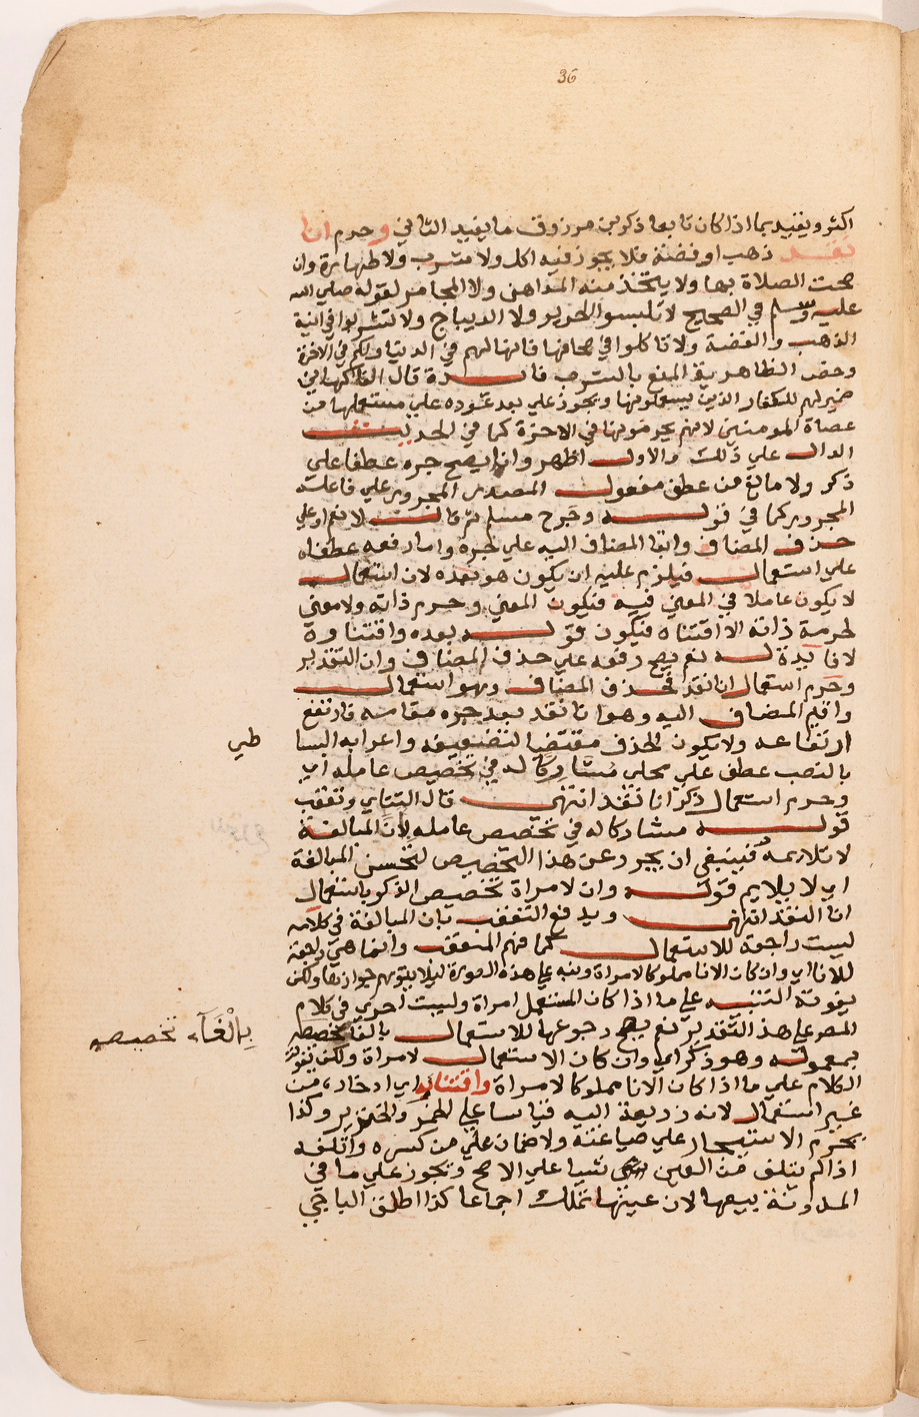 36
اكثر ويقيد بما اذا كان تابعا ذكر بن مرزوق ما يفيد الثاني وحرم انا
نقد ذهب او فضة فلا يجوز فيه اكل ولا مشرب ولا طهارة وان
صحت الصلاة بها ولا يتخذ منه المداهن ولا المجامر لقوله صلي الله
عليه وسلم في الصحيح لا تلبسوا الحرير ولا الديباج ولا تشربوا في انية
الذهب والفضة ولا تاكلوا في صحافها فانها لهم في الدنيا ولكم في الاخرة
وخص الظاهرية المنع بالشرب فايدة قال الفاكهاني
ضميرلهم للكفار الذين يستعملونها ويجوز علي بعد عوده علي مستعملها من
عصاة المومنين لانهم يحرمونها في الاخرة كما في الحديث
الدال علي ذلك والاول اظهر وانا يصح جره عطفا علي
ذكر ولا مانع من عطف مفعول المصدر المجرور علي فاعله
المجرور كما في قوله وجرح مسلم ثم قالت لا نعم او علي
حذف المضاف وابقا المضاف اليه علي جره واما رفعه عطفا
علي استعمال فيلزم عليه ان يكون هو بعده لان استعمال
لا يكون عاملا في المعني فيه فيكون المعني وحرم ذاته ولا معني
لحرمة ذاته الا اقتناه فيكون قوله بعده واقتناوه
لا فايدة له نعم يصح رفعه علي حذف المضاف وان التقدير
وحرم استعمال انا نقد فحذف المضاف وهو استعمال
واقيم المضاف اليه وهو انا نقد بعد جره مقامه فارتفع
ارتفاعه ولا يكون الحذف مقتضيا لتضعيفه واعرابه البسا
طي
بالنصب عطف علي محلي مشاركا له في تخصيص عامله اي
وحرم استعمال ذكر انا نقد انتهى قال التتاي وتعقب
قوله مشاركا له في تخصيص عامله لان المبالغة
لا تلايمه فينبغي ان يجرد عن هذا التخصيص لتحسن المبالغة
اي لا يلايم قوله وان لامراة تخصيص الذكر باستعمال
انا النقد انتهى ويدفع التعقب بان المبالغة في كلامه
ليست راجعة للاستعمال كما فهم المتعقب وانما هي راجعة
للانا اي وان كان الانا مملوكا لامراة ونبه علي هذه الصورة ليلا يتوهم جوازها ولكن
يفوته التنبيه علي ما اذا كان المستعمل امراة وليست احري في كلام
المص علي هذ التقدير نعم يصح رجوعها للاستعمال بالغا تخصصه
بالْغَآء تخصيصه
بمعموله وهو ذكر اي وان كان الاستعمال لامراة ولكن يفوت
الكلام علي ما اذا كان الانا مملوكا لامراة واقتناوه اي ادخاره من
غير استعمال لانه ذريعة اليه قياسا علي الخمر والخنزير وكذا
يحرم الاستيجار علي صياغته ولا ضمان علي من كسره واتلفه
اذا لم يتلف من العين شيا علي الاصح ويجوز علي ما في
المدونة بيعها لان عينها تملك اجماعا كذا اطلق الباجي